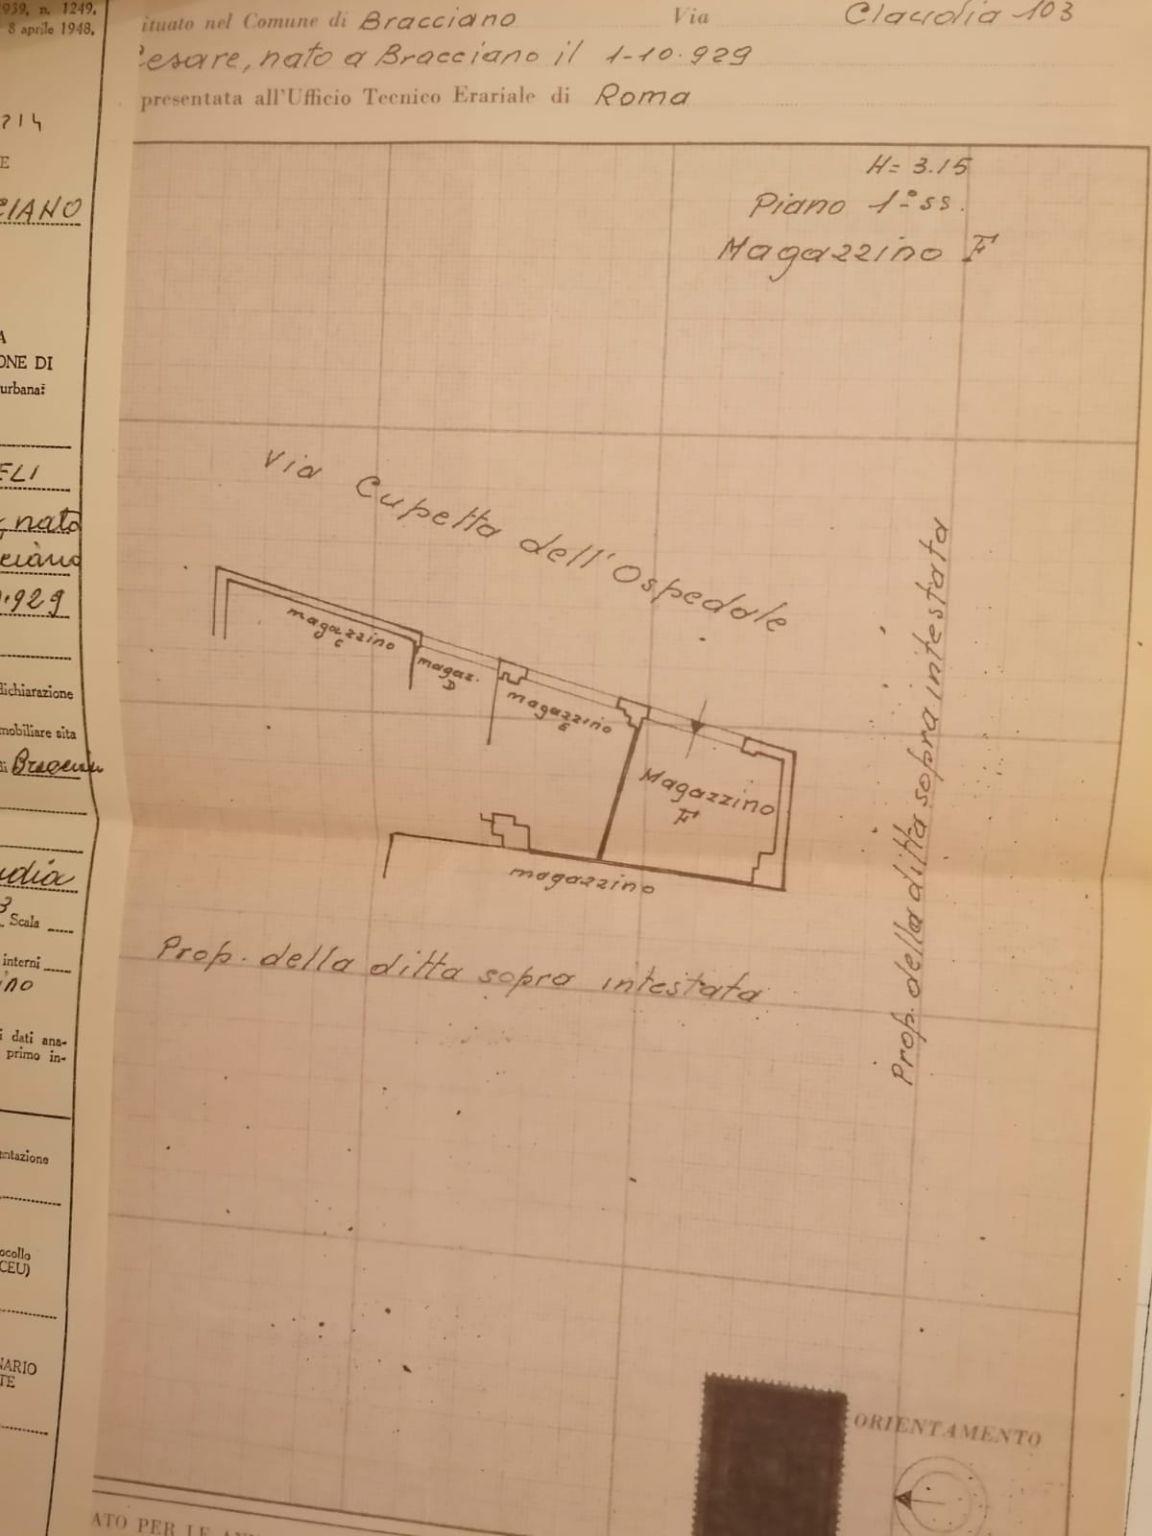 939, n. 1249,
8 aprile 1948,
214
E
CIANO
A
ONE DI
urbana:
ELI
, nato
.929
dichiarazione
mobiliare sita
di
udia
3
Scala
interni
ino
i dati ana-
primo in-
entazione
ocollo
CEU)
NARIO
TE
ituato nel Comune di Bracciano Via Claudia 103
Cesare, nato a Bracciano il 1-10.929
presentata all'Ufficio Tecnico Erariale di Roma
H= 3.15
Piano 1° ss.
Magazzino F
Via Cupetta dell'Ospedale
magazzino
C
magaz.
D
magazzino
E
Magazzino
F
magazzino
Prop. della ditta sopra intestata
Prop. della ditta sopra intestata
ORIENTAMENTO
ATO PER LE